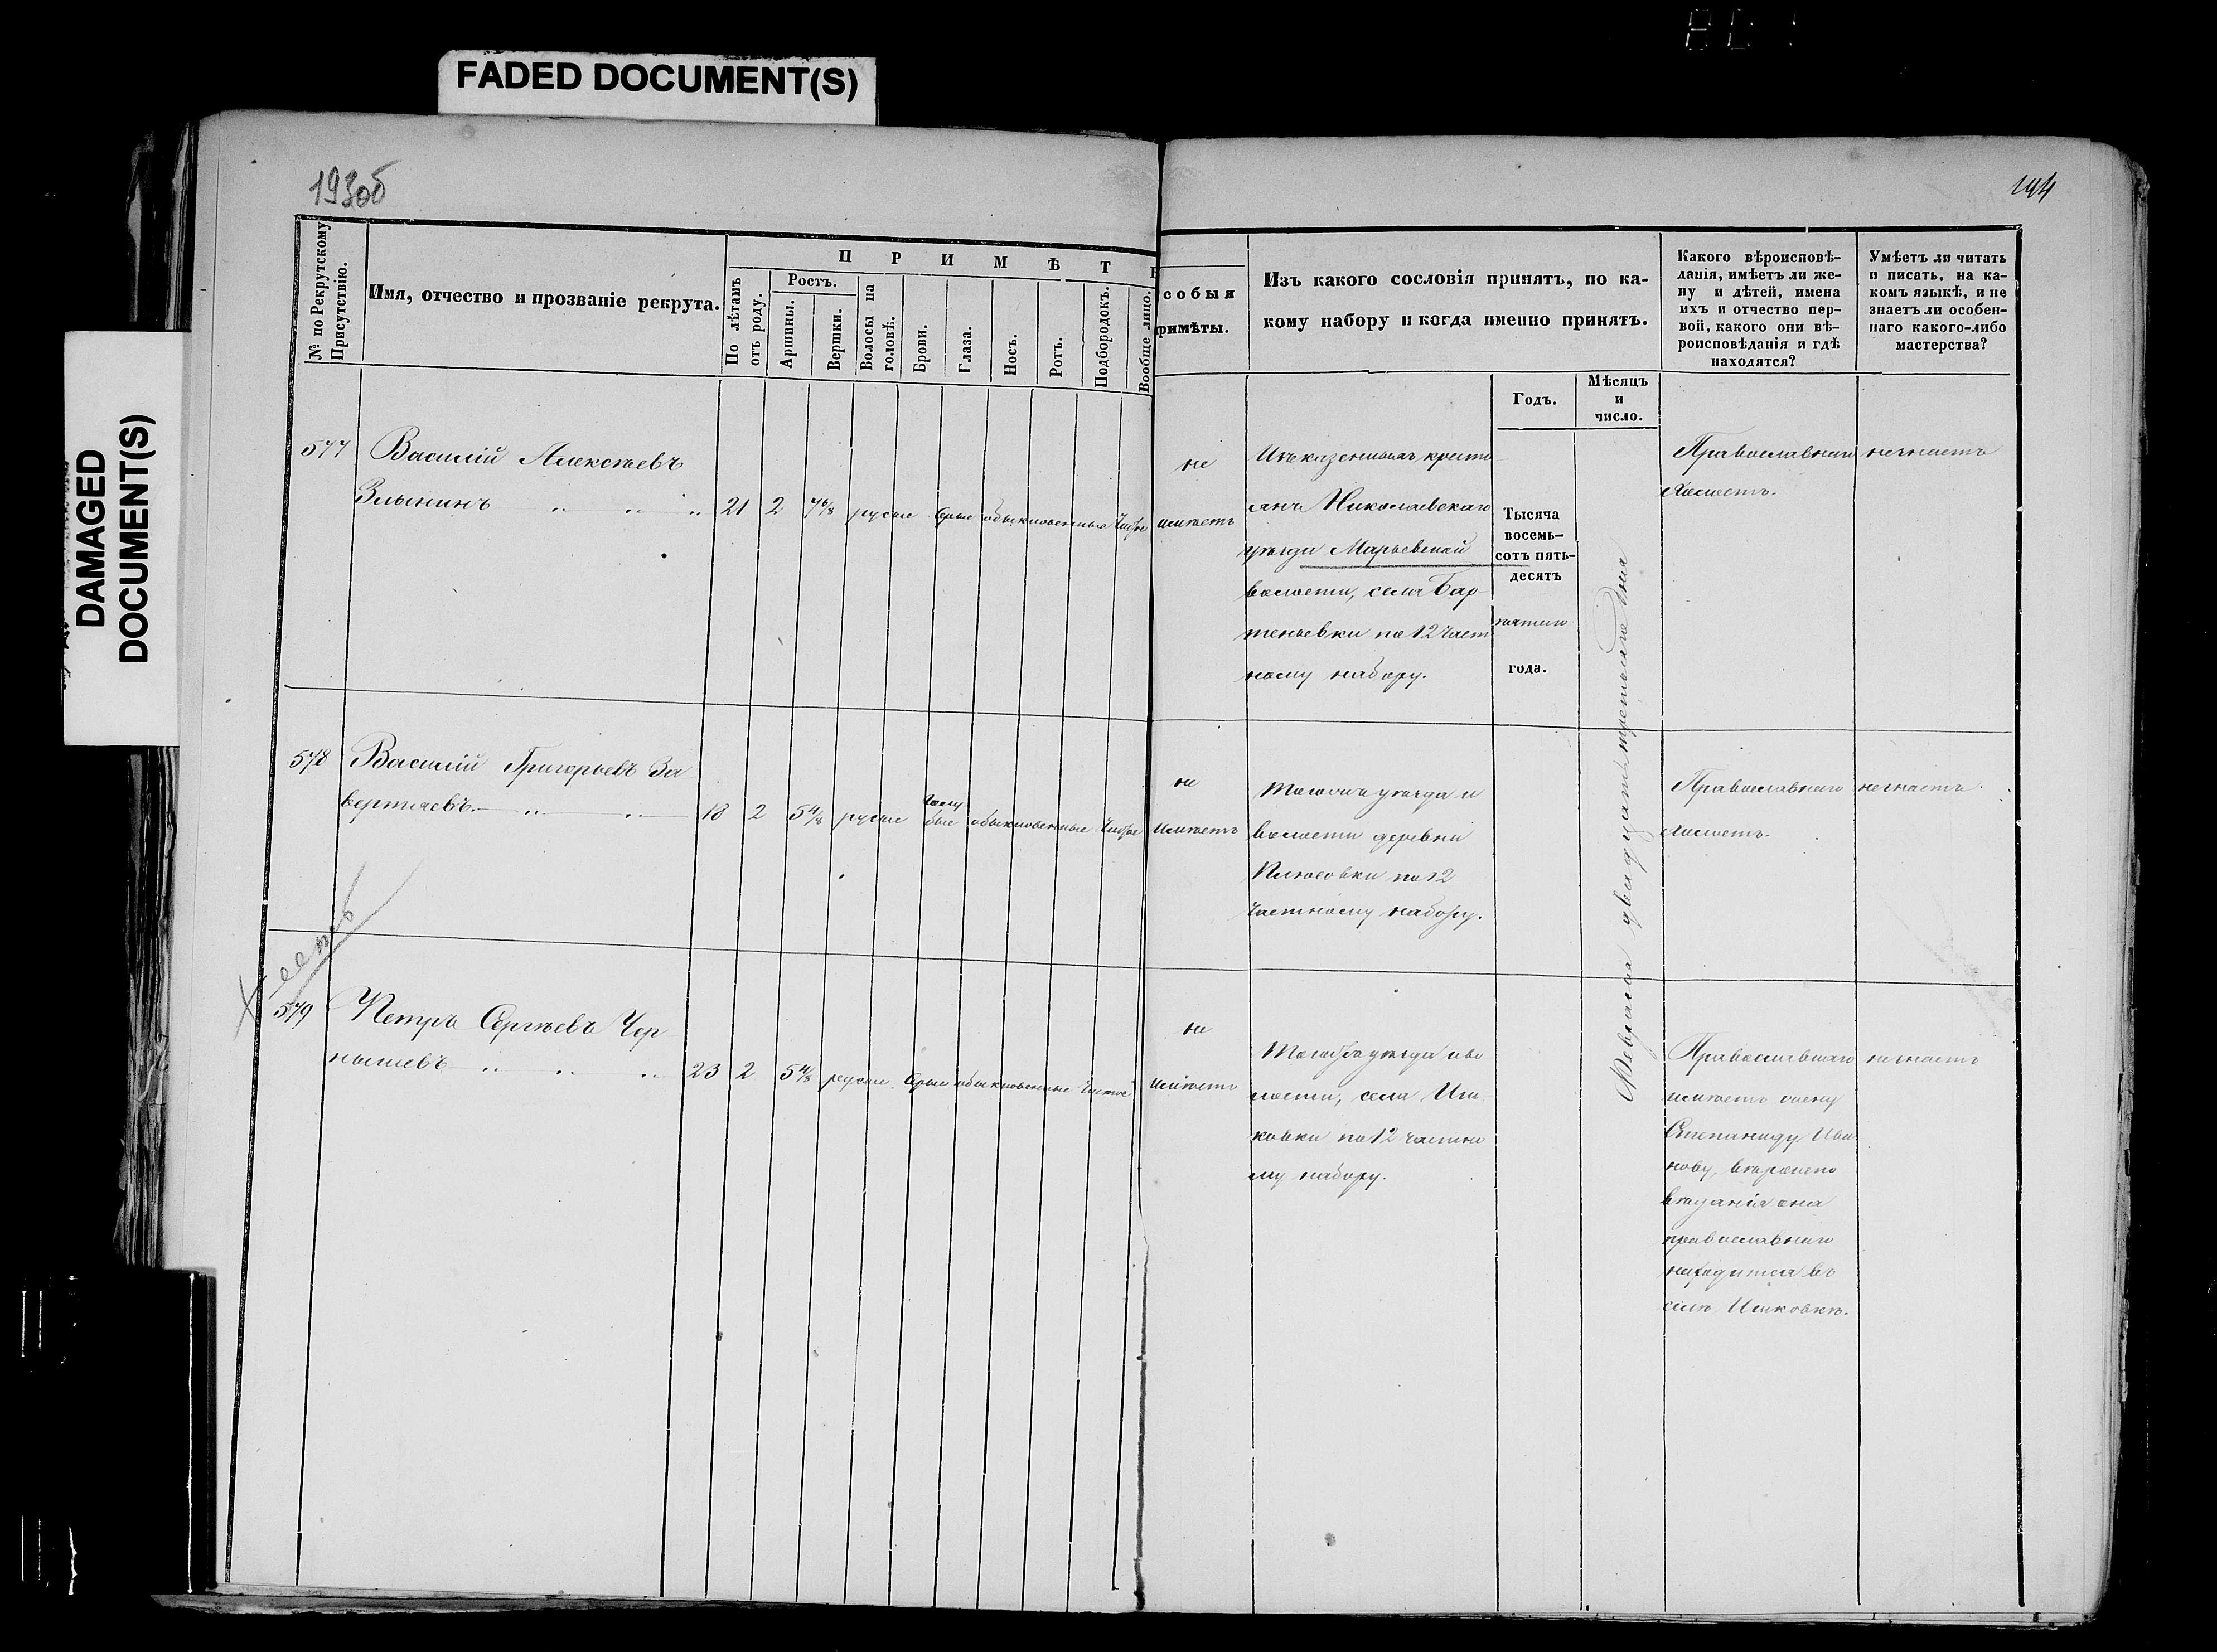 FADED DOCUMENT(S)
DAMAGED
DOCUMENT(S)
193об
194
№ по Рекрутскому
Присутствію.
Имя, отчество и прозваніе рекрута.
ПРИМѢТ
По лѣтамъ
отъ роду.
Ростъ.
Аршины.
Вершки.
Волосы на
головѣ.
Брови.
Глаза.
Носъ.
Ротъ.
Подбородокъ.
Вообще лицо.
собыя
римѣты.
Изъ какого сословія принятъ, по ка-
кому набору и когда именно принятъ.
Годъ.
Мѣсяцъ
и
число.
Какого вѣроисповѣ-
данія, имѣетъ ли же-
ну и дѣтей, имена
ихъ и отчество пер-
вой, какого они вѣ-
роисповѣданія и гдѣ
находятся?
Умѣетъ ли читать
и писать, на ка-
комъ языкѣ, и не
знаетъ ли особен-
наго какого-либо
мастерства?
577
Василій Алексѣевъ
Злынинъ
21 2 7 6/8 русые сѣрые обыкновенные чистое
не
имѣетъ
Изъ казенныхъ кресть
янъ Николаевскаго
уѣзда Марьевской
волости, села Бар
теньевки по 12 част
ному набору.
Тысяча
восемь-
сотъ пять-
десятъ
пятаго
года.
Февраля двадцать третьяго дня
Православнаго
холостъ.
незнаетъ
578
Василій Григорьевъ За
вертяевъ.
18 2 5 4/8 русые голу
бые обыкновенные чистое
не
имѣетъ
Тогожъ уѣзда и
волости деревни
по 12
частному набору.
Православнаго
холостъ.
незнаетъ
579
Петръ Сергѣевъ Чер
нышевъ
23 2 5 4/8 русые сѣрые обыкновенные чистое
не
имѣетъ
Тогожъ уѣзда и во
лости, села Иш
ковки по 12 частно
му набору.
Православнаго
имѣетъ жену
Степаниду Ива
нову, вѣроиспо
вѣданія она
православнаго
находится въ
селѣ Ишковкѣ.
незнаетъ